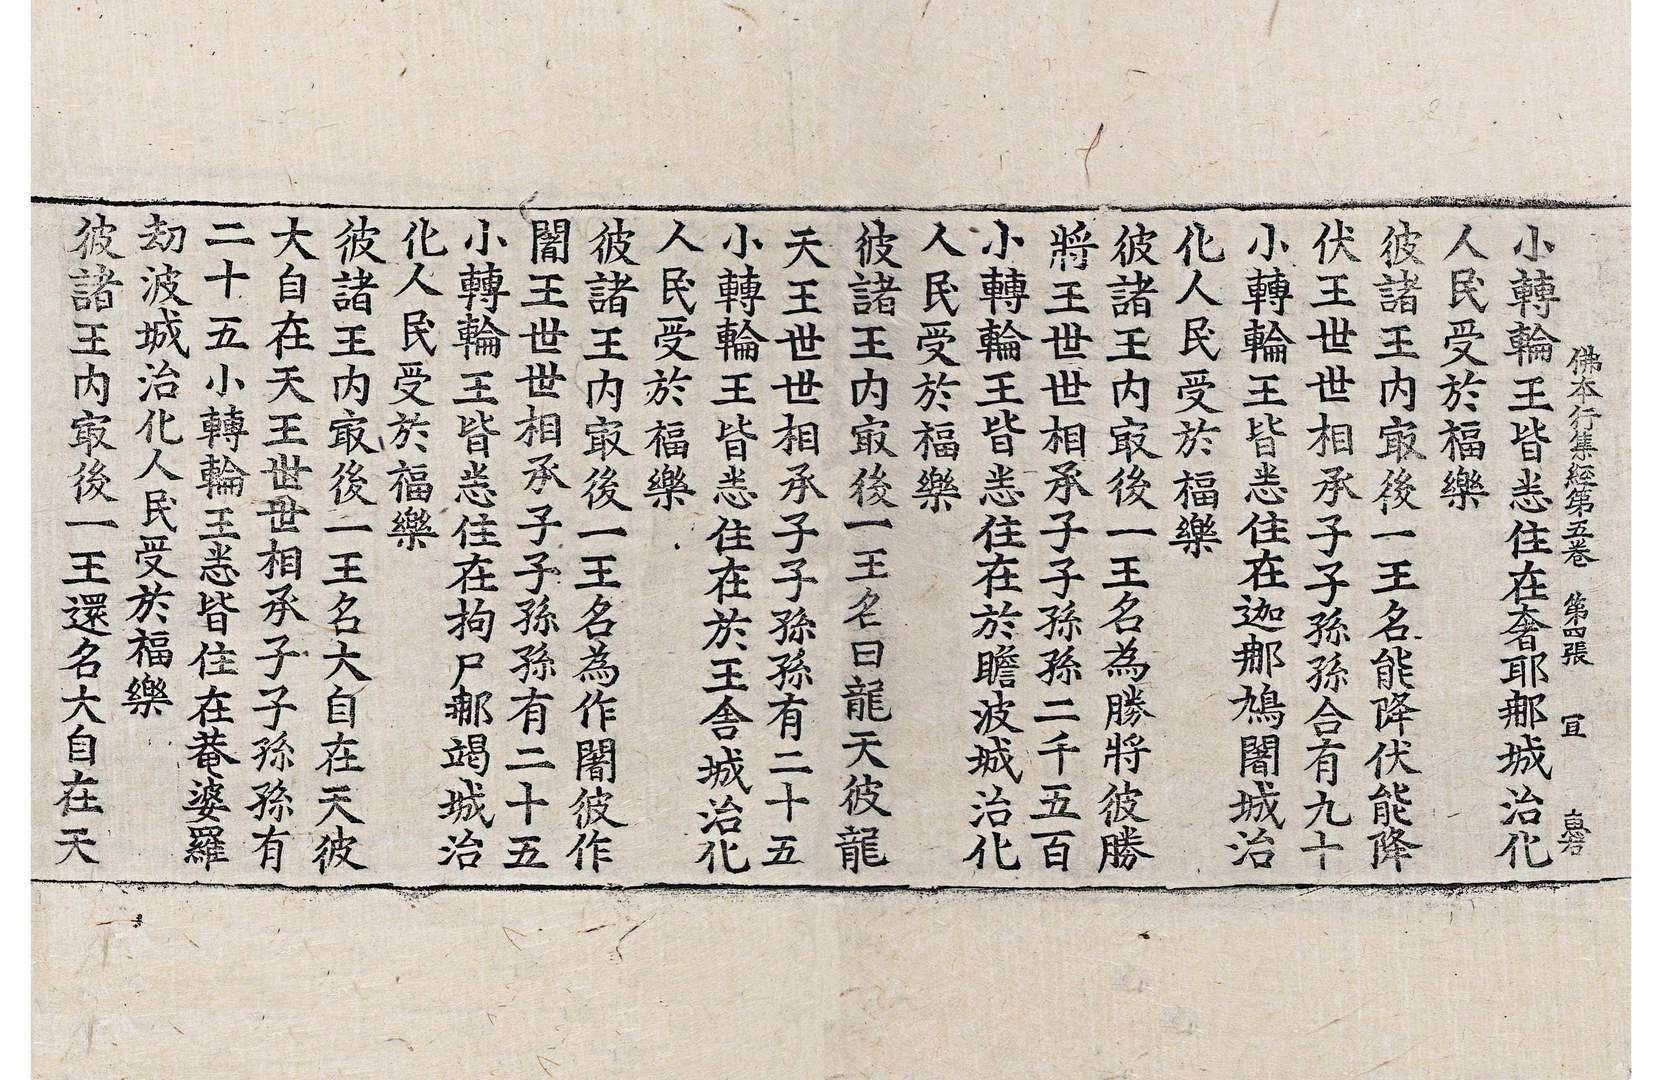 佛本行集經第五卷 第四張 冝
小轉輪王皆悉住在奢耶郍城治化
人民受於福樂
彼諸王内㝡後一王名能降伏能降
伏王世世相承子子孫孫合有九十
小轉輪王皆悉住在迦郍鳩闍城治
化人民受於福樂
彼諸王内㝡後一王名為勝將彼勝
將王世世相承子子孫孫二千五百
小轉輪王皆悉住在於瞻波城治化
人民受於福樂
彼諸王内㝡後一王名曰龍天彼龍
天王世世相承子子孫孫有二十五
小轉輪王皆悉住在於王舍城治化
人民受於福樂
彼諸王内㝡後一王名為作闍彼作
闍王世世相承子子孫孫有二十五
小轉輪王皆悉住在拘尸郍竭城治
化人民受於福樂
彼諸王内㝡後一王名大自在天彼
大自在天王世世相承子子孫孫有
二十五小轉輪王悉皆住在菴婆羅
劫波城治化人民受於福樂
彼諸王内㝡後一王還名大自在天